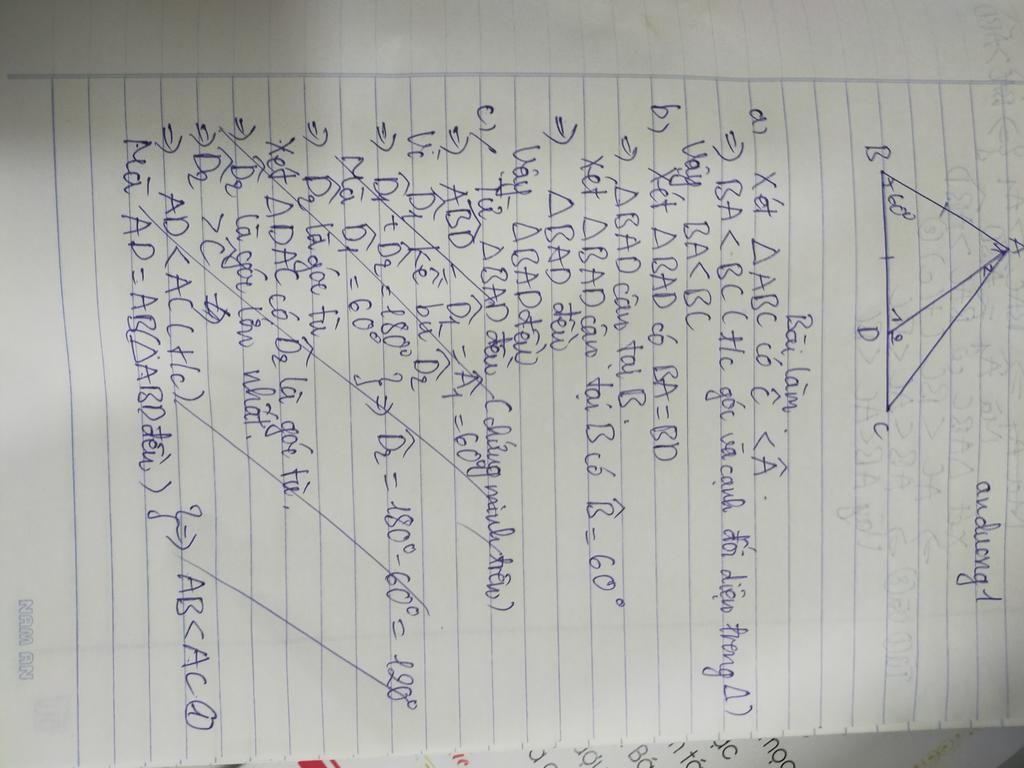 anduong1
A
B
60°
1
2
D
C
Bài làm:
a) Xét △ABC có Ĉ < Â.
=) BA < BC ( t/c góc và cạnh đối diện trong △)
Vậy BA < BC
b) Xét △BAD có BA = BD
=) △BAD cân tại B.
Xét △BAD cân tại B có B̂ = 60°
=) △BAD đều
Vậy △BAD đều
c) Từ △BAD đều (chứng minh trên)
=) ABD = D̂1 = Â1 = 60°
Vì D̂1 kề bù D̂2
=) D̂1 + D̂2 = 180° } =) D̂2 = 180° - 60° = 120°
Mà D̂1 = 60°
=) D̂2 là góc tù
Xét △DAC có D̂2 là góc tù.
=) D̂2 là góc lớn nhất.
=) D̂2 > Ĉ
=) AD < AC ( t/c) } =) AB < AC (1)
Mà AD = AB( △ABD đều)
NAM AN